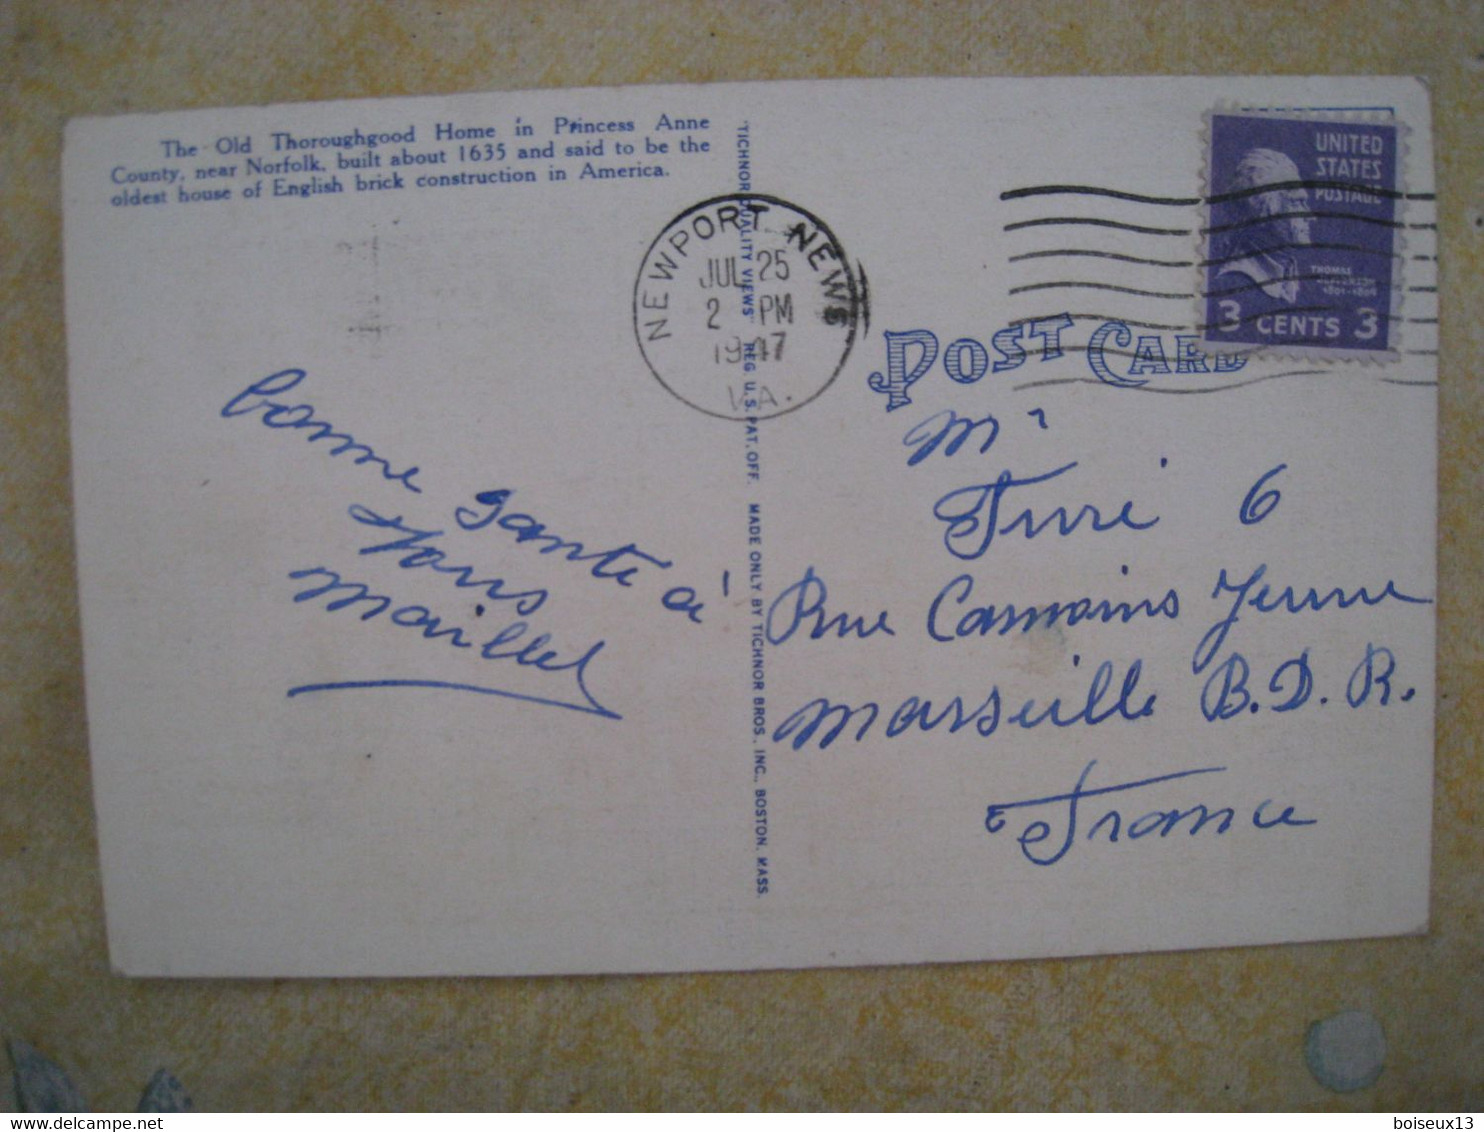 The Old Thoroughgood Home in Princess Anne
County, near Norfolk, built about 1635 and said to be the
oldest house of English brick construction in America.
"TICHNOR QUALITY VIEWS" REG. U.S. PAT. OFF. MADE ONLY BY TICHNOR BROS., INC., BOSTON, MASS.
NEWPORT NEWS
JUL 25
2 PM
1947
VA.
UNITED
STATES
POSTAGE
THOMAS
JEFFERSON
1801-1809
3 CENTS 3
POST CARD
bonne santé à
tous
Maillet
Mr
Turri 6
Rue Camoins Jeune
Marseille B.D.R.
France
boiseux13